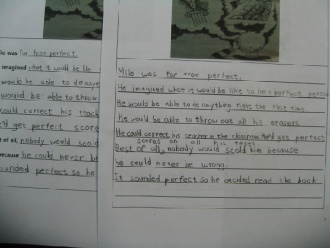 ilo was far from perfect.
imagined what it would be like
would be able to do anyt
would be able to throw
could correct his teach
get perfect score
t of all, nobody would scol
because he could never be
ounded perfect so he
Milo was far from perfect.
He imagined what it would be like to be a perfect person
He would be able to do anything right the first time.
He would be able to throw out all his erasers.
He could correct his teacher in the classroom and get perfect
scores on all his tests
Best of all, nobody would scold him because
he could never be wrong.
It sounded perfect so he decided read the book